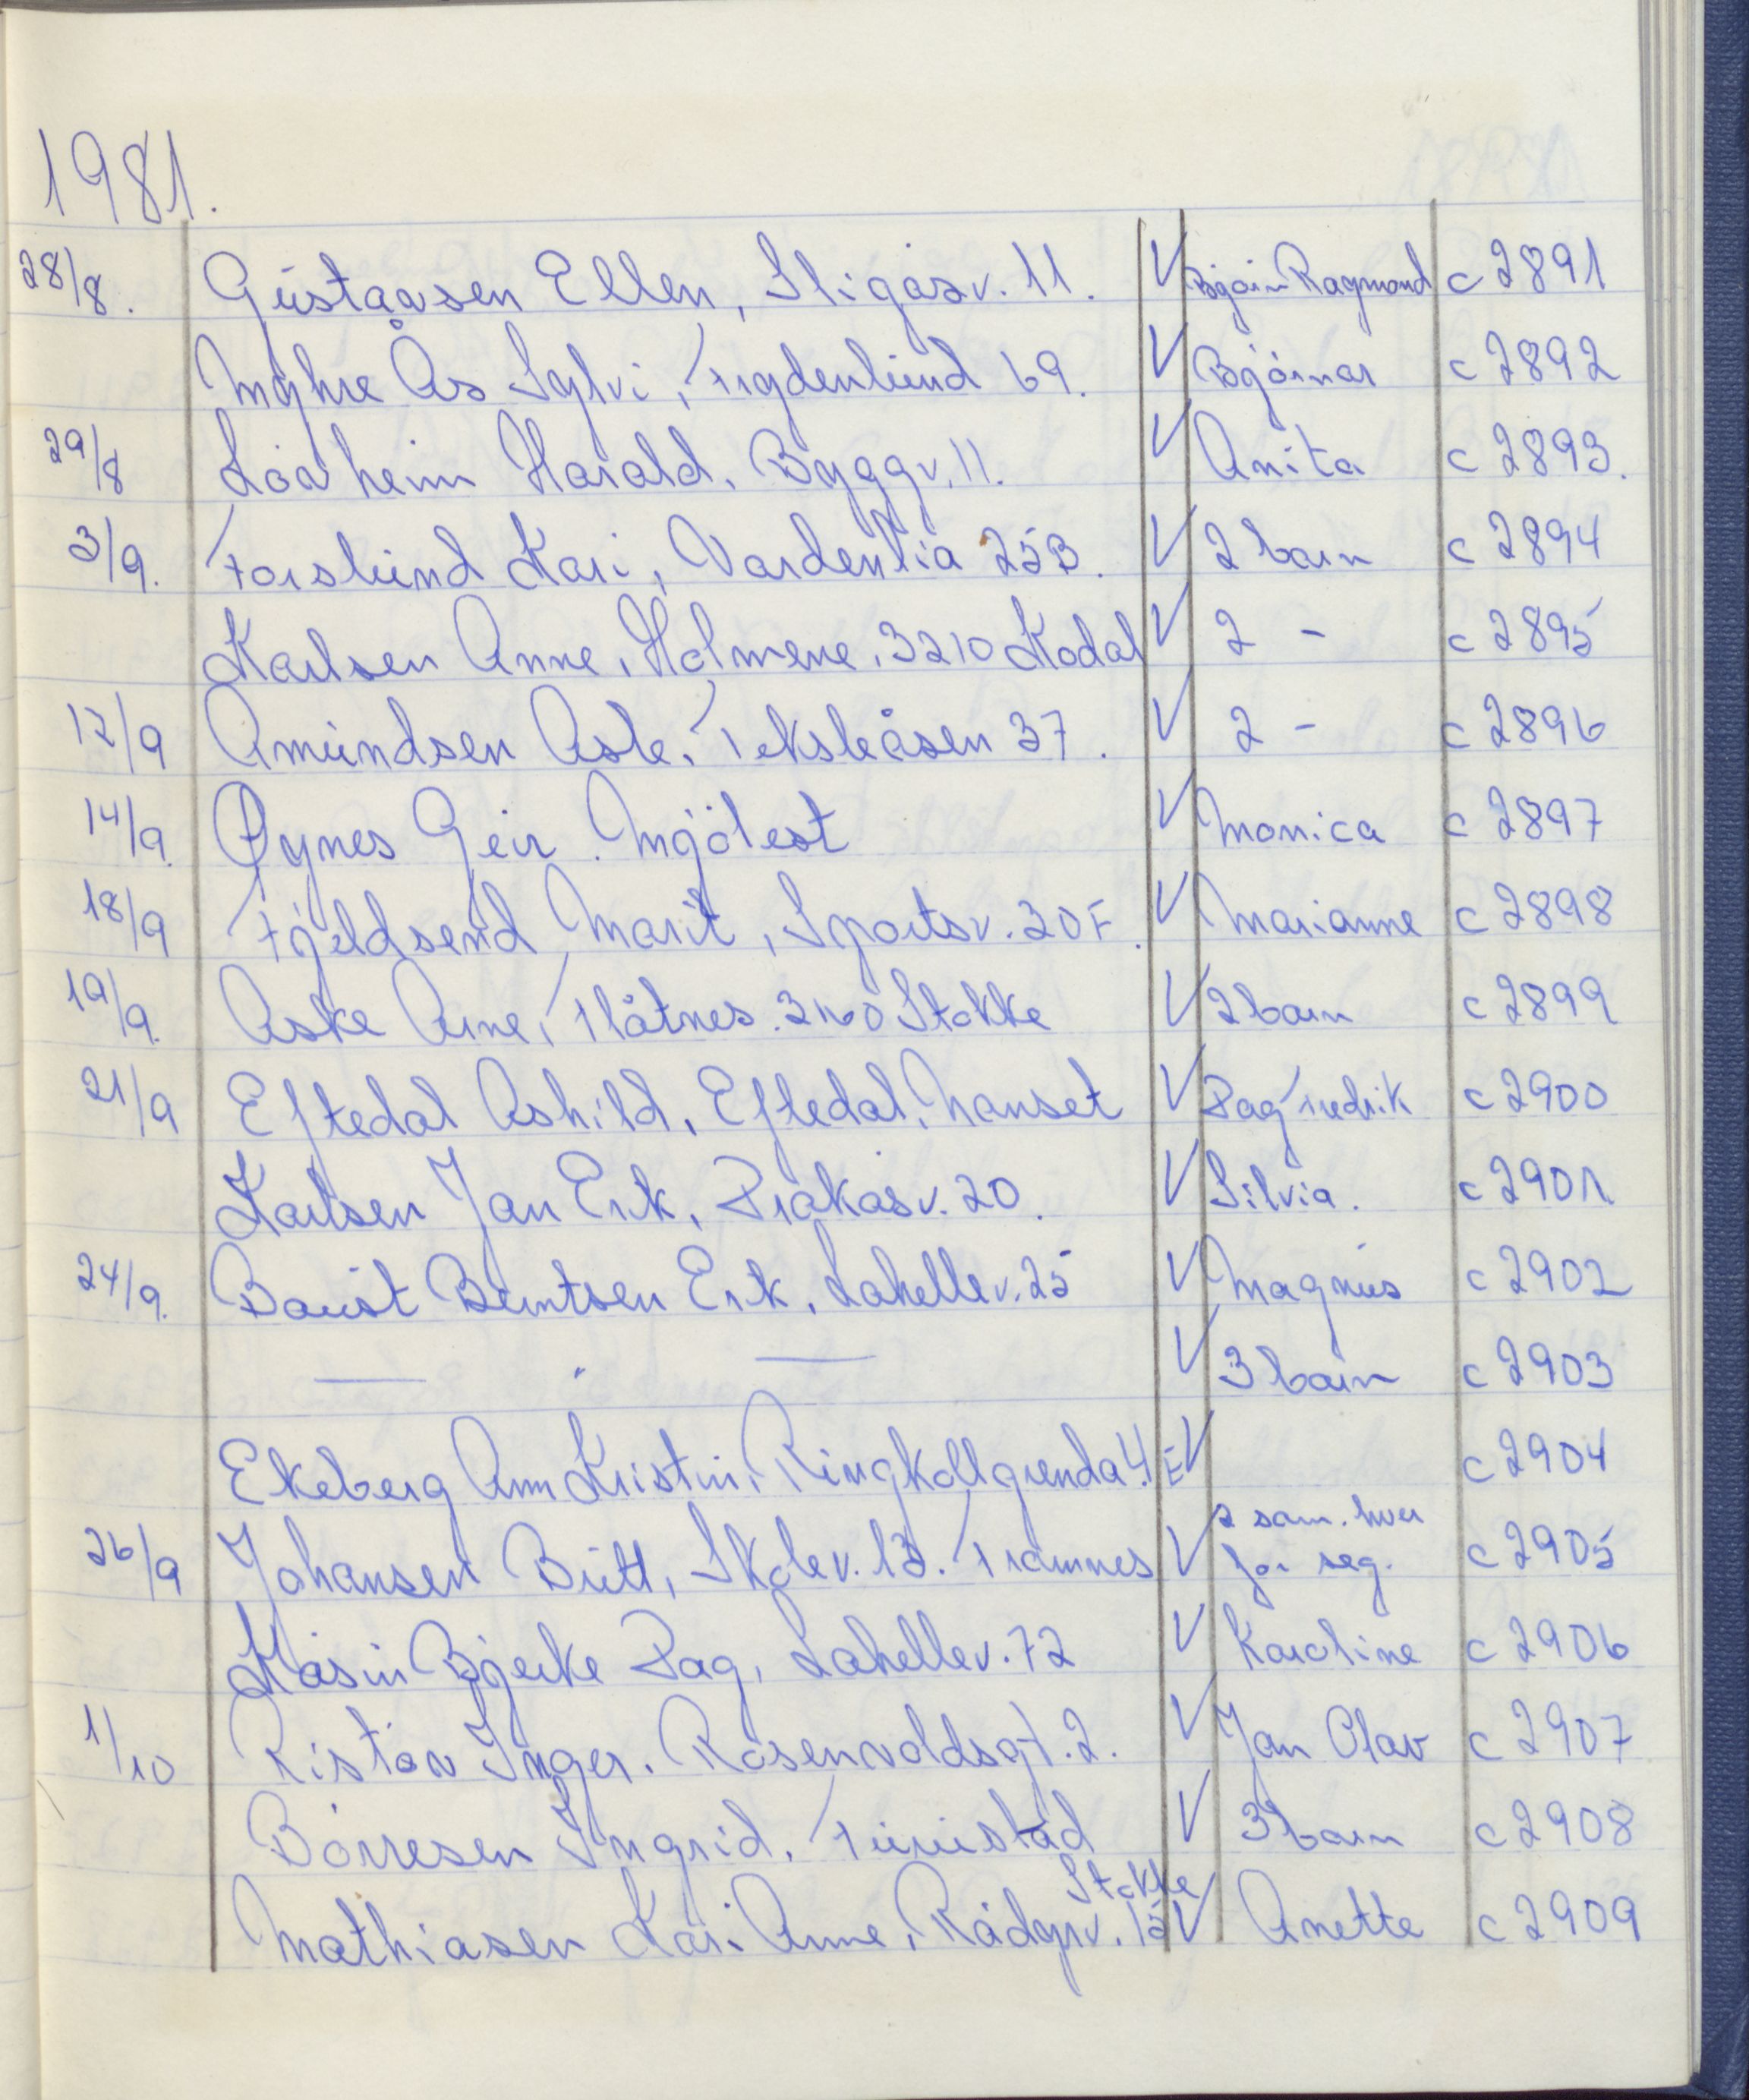 1981.
28/8. Gustavsen Ellen, Stigåsv. 11. V Bjørn Raymond c 2891
Myhre Ås Sylvi, Frydenlund 69. V Bjørnar c 2892
29/8 Lövheim Harald, Byggv. 11. V Anita c 2893.
3/9. Forslund Kari, Vardenlia 25B. V 2 barn c 2894
Karlsen Anne, Holmene, 3210 Kodal V 2 - c 2895
12/9 Amundsen Asle, Feksleåsen 37. V 2 - c 2896
14/9. Øynes Geir. Mjölest V Monica c 2897
18/9 Fjeldsend Marit, Sportsv. 20F. V Marianne c 2898
19/9. Aske Arne, Flåtnes. 3160 Stokke V 2 barn c 2899
21/9 Eftedal Åshild, Eftedal, Kvanset V Dag Fredrik c 2900
Karlsen Jan Erik, Prakåsv. 20. V Silvia. c 2901
24/9. Baust Berntsen Erik, Lahellev. 25 V Magnus c 2902
— " — V 3 barn c 2903
Ekeberg Ann Kristin, Ringkollgrenda 4E V c 2904
2 sam. hver
26/9 Johansen Britt, Skolev. 13. Framnes V for seg. c 2905
Kåsin Bjerke Dag, Lahellev. 72 V Karoline c 2906
1/10 Inger. Rosenvoldsgt. 2. V Jan Olav c 2907
Börresen Ingrid, Furustad V 3 barn c 2908
Stokke
Mathiasen Kari Anne, Rådyrv. 15 V Anette c 2909